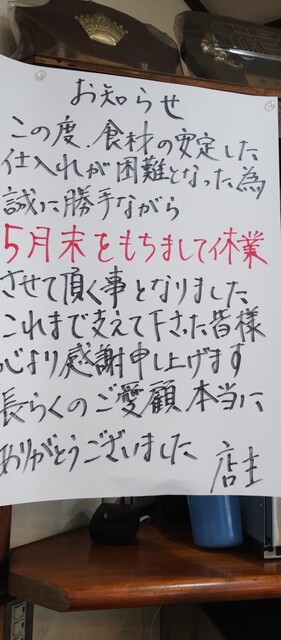 お知らせ
この度、食材の安定した
仕入れが困難となった為
誠に勝手ながら
5月末をもちまして休業
させて頂く事となりました
これまで支えて下さった皆様
心より感謝申し上げます
長らくのご愛顧本当に
ありがとうございました
店主